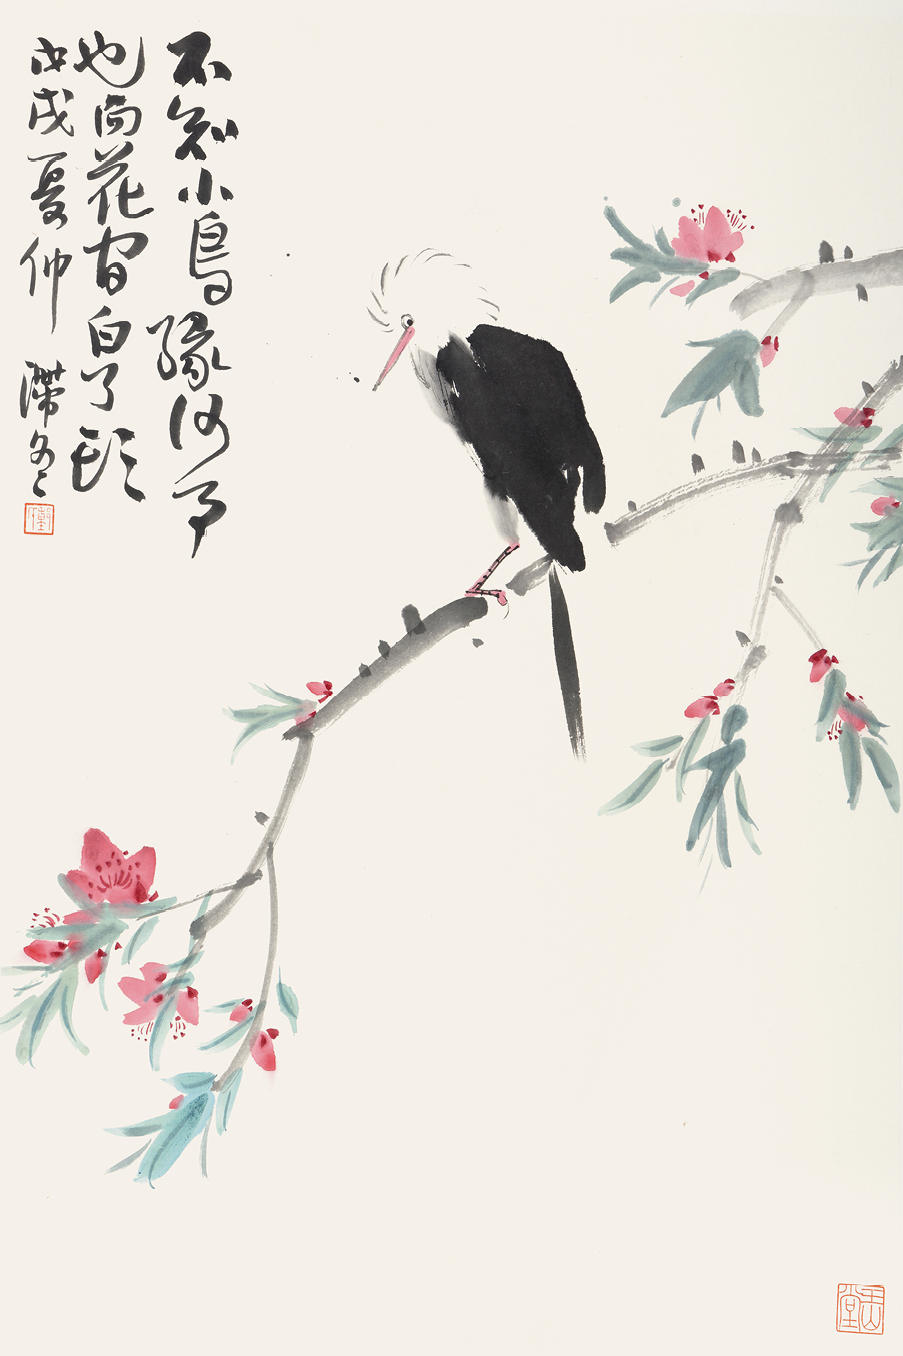 不知小鳥緣何事
也向花間白了頭
戊戌夏仲 滯冬